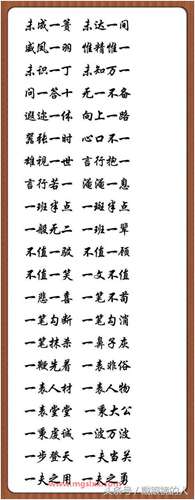 未成一篑 未达一间
威凤一羽 惟精惟一
未识一丁 未知万一
问一答十 无一不备
遐迩一体 向上一路
嚣张一时 心口不一
雄视一世 言行抱一
言行若一 淹淹一息
一班半点 一斑半点
一般无二 一班一辈
不值一驳 不值一顾
不值一笑 一文不值
一悲一喜 一笔不苟
一笔勾断 一笔勾消
一笔抹杀 一鼻子灰
一鞭先着 一表非俗
一表人材 一表人物
一表堂堂 一秉大公
一秉虔诚 一波万波
一步登天 一夫当关
一夫之用 一夫之勇